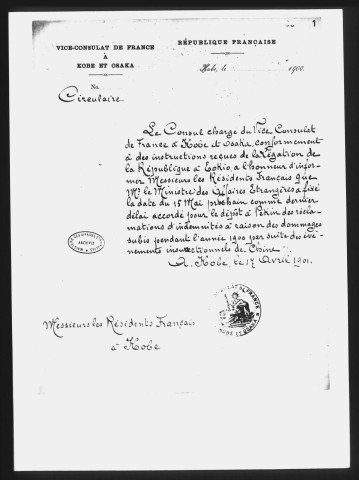 1
VICE-CONSULAT DE FRANCE
À
KOBE ET OSAKA
RÉPUBLIQUE FRANÇAISE
Kobe, le 1900.
No
Circulaire.
Le Consul chargé du Vice Consulat
de France à Kobe et Osaka, conformément
à des instructions reçues de la Légation de
la République à Tokio, a l'honneur d'infor-
mer Messieurs les Résidents Français que
Mr. le Ministre des Affaires Etrangères a fixé
la date du 15 Mai prochain comme dernier
délai accordé pour le dépôt à Pékin des récla-
mations d'indemnités à raison des dommages
subis pendant l'année 1900 par suite des évé-
nements insurrectionnels de Chine ./.
A Kobe, le 17 Avril 1901.
ARCHIVES
Messieurs les Résidents Français
à Kobe
KOBE ET OSAKA